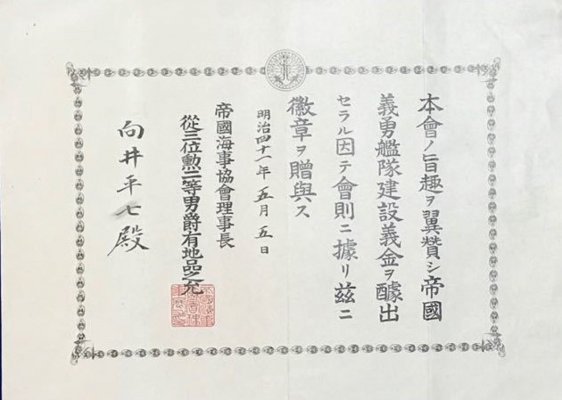 本會ノ旨趣ヲ翼賛シ帝國
義勇艦隊建設義金ヲ醵出
セラル因テ會則ニ據リ玆ニ
徽章ヲ贈與ス
明治四十一年五月五日
帝國海事協會理事長
從三位勲二等男爵有地品之允
向井平七殿